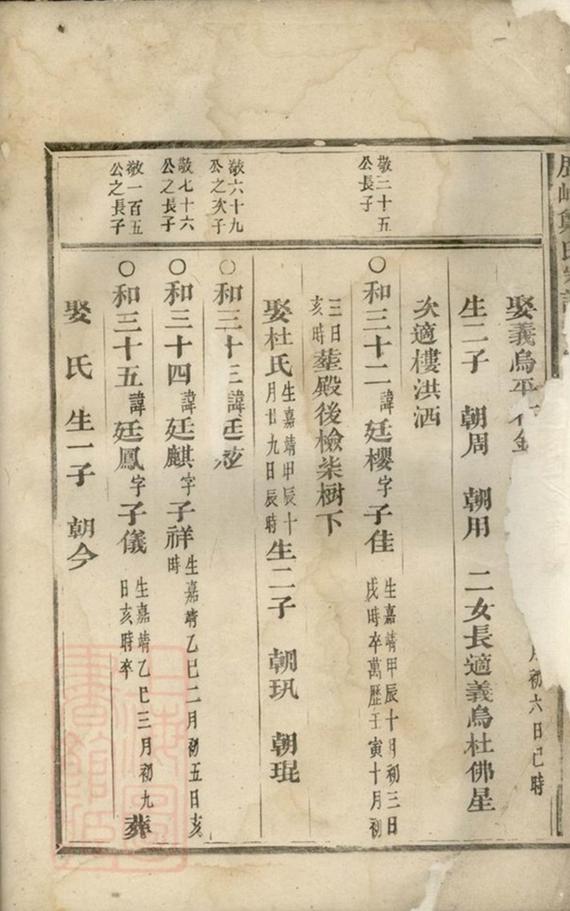 氏
娶義烏平
月初六日巳時
生二子 朝周 朝用 二女長適義烏杜佛星
次適樓洪洒
敬三十五
公長子
○和三十二諱廷櫻字子佳 生嘉靖甲辰十月初三日
戌時卒萬歷壬寅十月初
三日
亥時塟殿後檢柒樹下
娶杜氏生嘉靖甲辰十
月廿九日辰時生二子 朝玑 朝琨
敬六十九
公之次子
○和三十三諱廷
敬七十六
公之長子
○和三十四諱廷麒字子祥生嘉靖乙巳二月初五日亥
時
敬一百五
公之長子
○和三十五諱廷鳳字子儀 生嘉靖乙巳三月初九
日亥時卒 葬
娶 氏 生一子 朝今